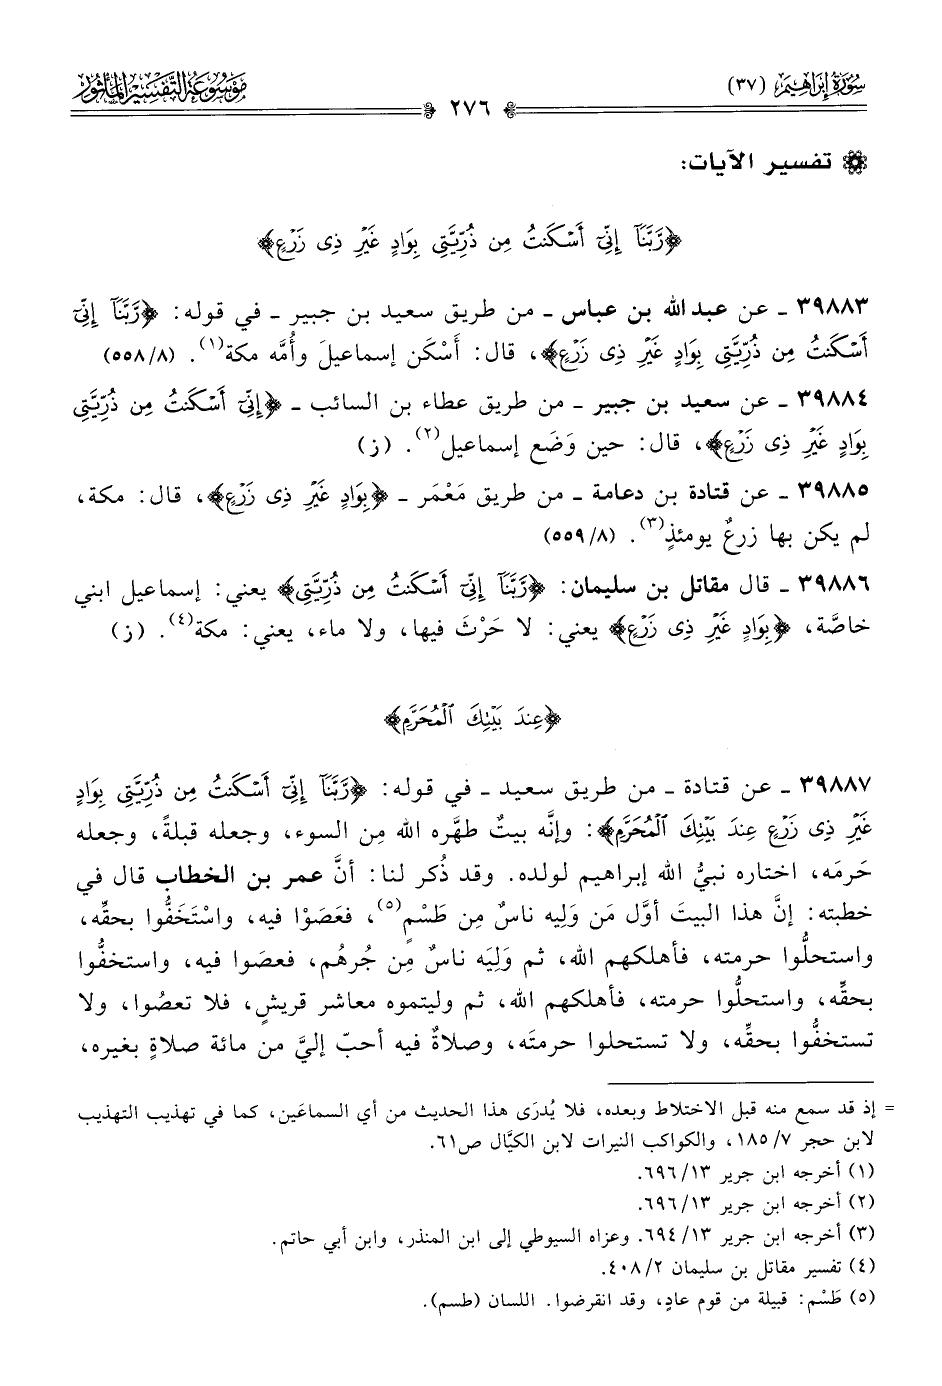 سُورَةُ إِبْرَاهِيم (٣٧)
٢٧٦
مَوْسُوعَةُ التَّفْسِيرِ المَأْثُور
تفسير الآيات:
﴿رَّبَّنَآ إِنِّىٓ أَسْكَنتُ مِن ذُرِّيَّتِى بِوَادٍ غَيْرِ ذِى زَرْعٍ﴾
٣٩٨٨٣ ـ عن عبد الله بن عباس ـ من طريق سعيد بن جبير ـ في قوله: ﴿رَّبَّنَآ إِنِّىٓ
أَسْكَنتُ مِن ذُرِّيَّتِى بِوَادٍ غَيْرِ ذِى زَرْعٍ﴾، قال: أَسْكَن إسماعيلَ وأُمَّه مكة(١). (٥٥٨/٨)
٣٩٨٨٤ ـ عن سعيد بن جبير ـ من طريق عطاء بن السائب ـ ﴿إِنِّىٓ أَسْكَنتُ مِن ذُرِّيَّتِى
بِوَادٍ غَيْرِ ذِى زَرْعٍ﴾، قال: حين وَضَع إسماعيل(٢). (ز)
٣٩٨٨٥ ـ عن قتادة بن دعامة ـ من طريق مَعْمَر ـ ﴿بِوَادٍ غَيْرِ ذِى زَرْعٍ﴾، قال: مكة،
لم يكن بها زرعٌ يومئذٍ(٣). (٥٥٩/٨)
٣٩٨٨٦ ـ قال مقاتل بن سليمان: ﴿رَّبَّنَآ إِنِّىٓ أَسْكَنتُ مِن ذُرِّيَّتِى﴾ يعني: إسماعيل ابني
خاصَّة، ﴿بِوَادٍ غَيْرِ ذِى زَرْعٍ﴾ يعني: لا حَرْثَ فيها، ولا ماء، يعني: مكة(٤). (ز)
﴿عِندَ بَيْتِكَ ٱلْمُحَرَّمِ﴾
٣٩٨٨٧ ـ عن قتادة ـ من طريق سعيد ـ في قوله: ﴿رَّبَّنَآ إِنِّىٓ أَسْكَنتُ مِن ذُرِّيَّتِى بِوَادٍ
غَيْرِ ذِى زَرْعٍ عِندَ بَيْتِكَ ٱلْمُحَرَّمِ﴾: وإنَّه بيتٌ طهَّره الله مِن السوء، وجعله قبلةً، وجعله
حَرمَه، اختاره نبيُّ الله إبراهيم لولده. وقد ذُكر لنا: أنَّ عمر بن الخطاب قال في
خطبته: إنَّ هذا البيتَ أوَّل مَن وَلِيه ناسٌ مِن طَسْمٍ(٥)، فعَصَوْا فيه، واسْتَخَفُّوا بحقِّه،
واستحلُّوا حرمته، فأهلكهم الله، ثم وَلِيَه ناسٌ مِن جُرهُم، فعصَوا فيه، واستخفُّوا
بحقِّه، واستحلُّوا حرمته، فأهلكهم الله، ثم وليتموه معاشر قريشٍ، فلا تعصُوا، ولا
تستخفُّوا بحقِّه، ولا تستحلوا حرمتَه، وصلاةٌ فيه أحبّ إليَّ من مائة صلاةٍ بغيره،
= إذ قد سمع منه قبل الاختلاط وبعده، فلا يُدرَى هذا الحديث من أي السماعَين، كما في تهذيب التهذيب
لابن حجر ٧/ ١٨٥، والكواكب النيرات لابن الكيَّال ص٦١.
(١) أخرجه ابن جرير ١٣/ ٦٩٦.
(٢) أخرجه ابن جرير ١٣/ ٦٩٦.
(٣) أخرجه ابن جرير ١٣/ ٦٩٤. وعزاه السيوطي إلى ابن المنذر، وابن أبي حاتم.
(٤) تفسير مقاتل بن سليمان ٢/ ٤٠٨.
(٥) طَسْم: قبيلة من قوم عادٍ، وقد انقرضوا. اللسان (طسم).